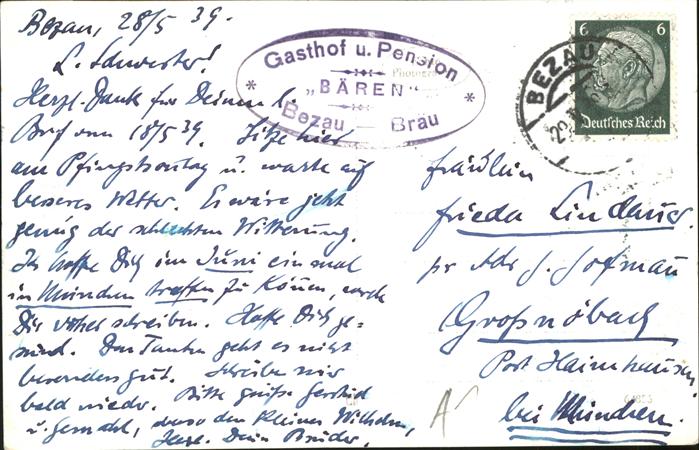 Bezau, 28/5 39.
L. Schwester!
Herzl. Dank für Deinen l.
Brief vom 18/5 39. Sitze hier
am Pfingstsonntag u. warte auf
besseres Wetter. Es wäre jetzt
genug der schlechten Witterung.
Ich hoffe Dich im Juni einmal
in München treffen zu können, werde
Dir vorher schreiben. Hoffe Dich ge-
sund. Den Tanten geht es nicht
besonders gut. Schreibe mir
bald wieder. Bitte grüße
u. Gemahl, den kleinen Wilhelm,
Herzl. Dein Bruder.
Gasthof u. Pension
„BÄREN"
Bezau Bräu
6 6
Deutsches Reich
BEZAU
Fräulein
Frieda Lindauer
pr Adr J. Hofmann
Großnöbach
Post Haimhausen
bei München.